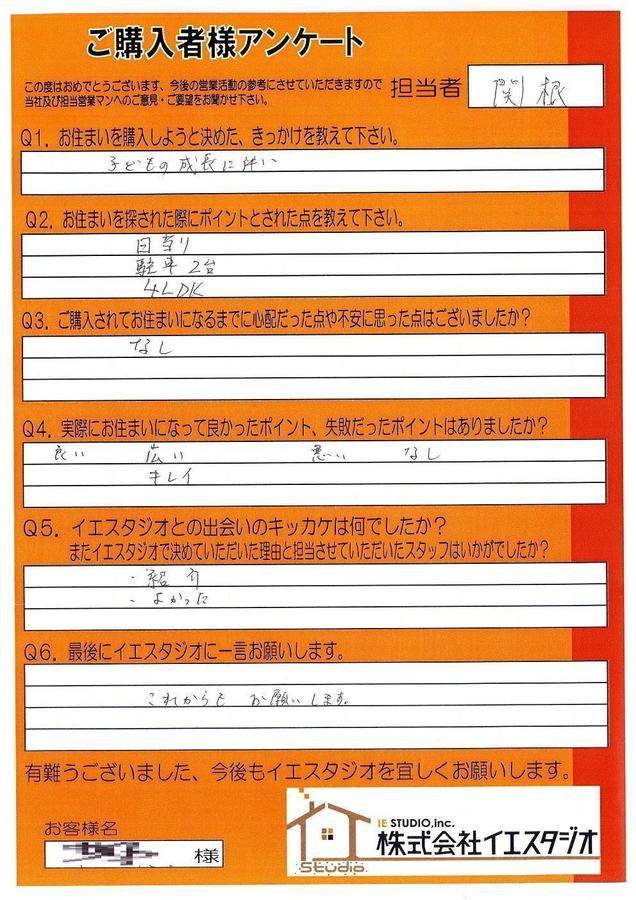 ご購入者様アンケート
この度はおめでとうございます、今後の営業活動の参考にさせていただきますので
当社及び担当営業マンへのご意見・ご要望をお聞かせ下さい。
担当者 関根
Q1．お住まいを購入しようと決めた、きっかけを教えて下さい。
子どもの成長に伴い
Q2．お住まいを探された際にポイントとされた点を教えて下さい。
日当り
駐車2台
4LDK
Q3．ご購入されてお住まいになるまでに心配だった点や不安に思った点はございましたか？
なし
Q4．実際にお住まいになって良かったポイント、失敗だったポイントはありましたか？
良い 広い 悪い なし
キレイ
Q5．イエスタジオとの出会いのキッカケは何でしたか？
またイエスタジオで決めていただいた理由と担当させていただいたスタッフはいかがでしたか？
・紹介
・よかった
Q6．最後にイエスタジオに一言お願いします。
これからも お願いします。
有難うございました、今後もイエスタジオを宜しくお願いします。
お客様名
様
IE STUDIO,inc.
株式会社イエスタジオ
Studio